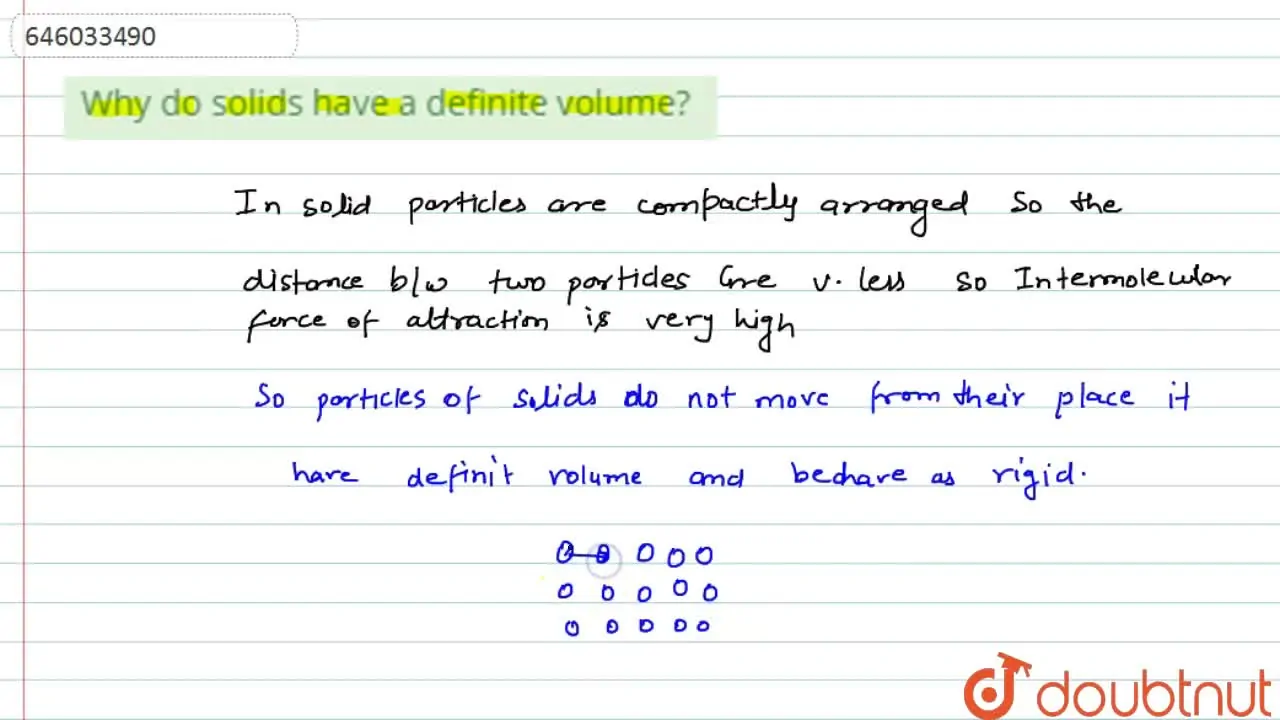 646033490
Why do solids have a definite volume?
In solid particles are compactly arranged So the
distance b/w two particles are v. less so Intermolecular
force of attraction is very high
So particles of solids do not move from their place it
have definit volume and bechave as rigid.
doubtnut